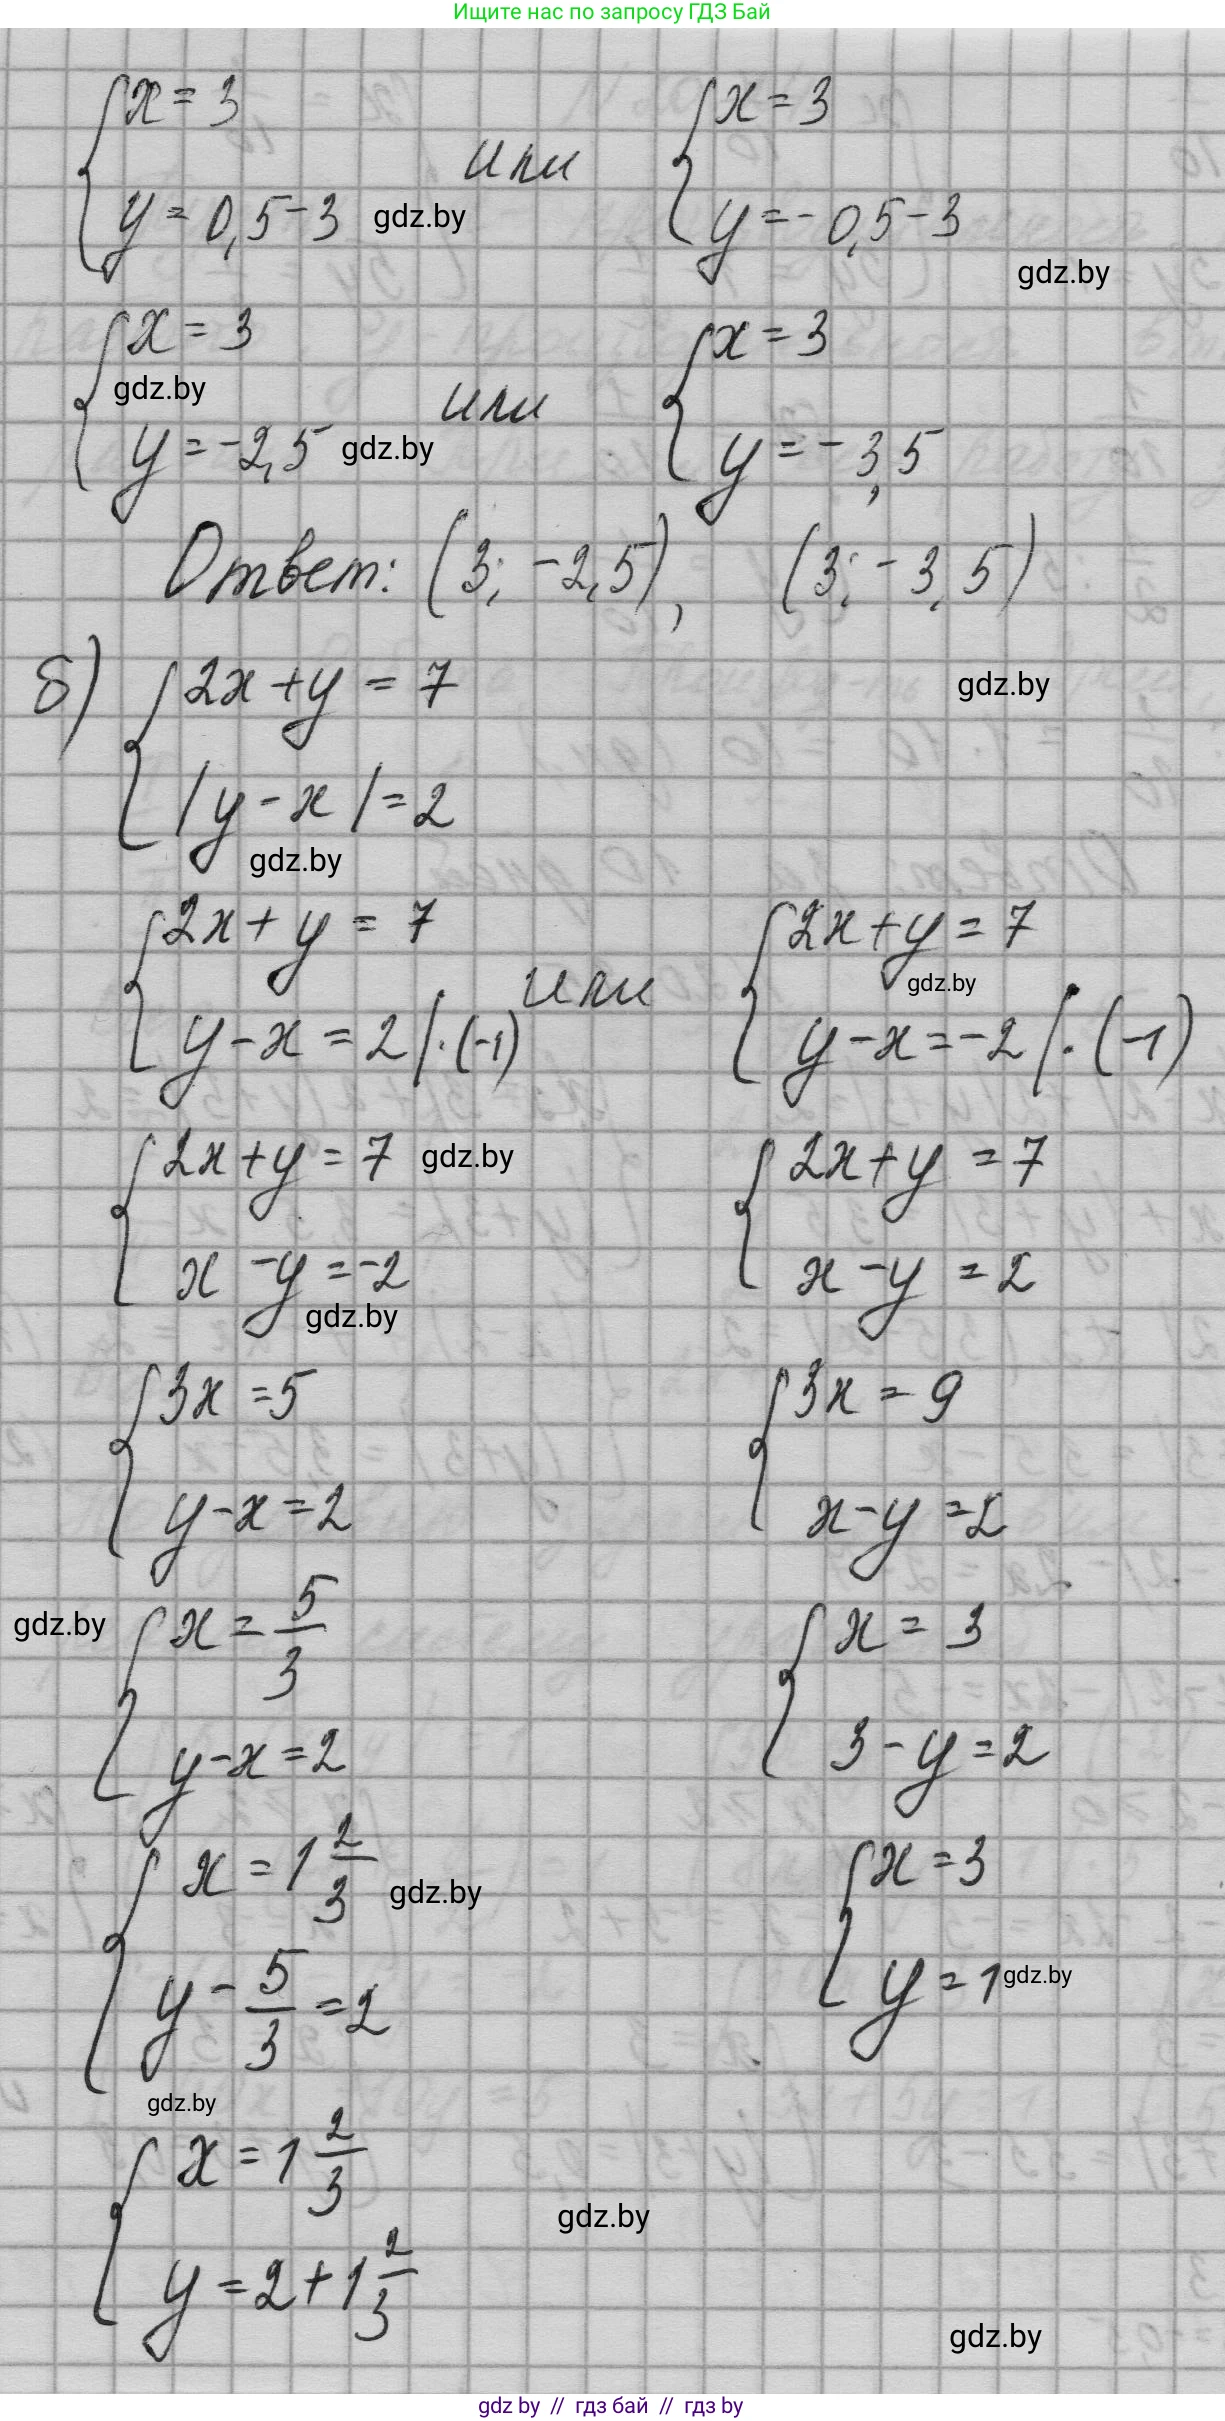 Ищите нас по запросу ГДЗ Бай
x = 3
y = 0,5 - 3 gdz.by
или
x = 3
y = - 0,5 - 3
gdz.by
x = 3
gdz.by
y = -2,5 gdz.by
или
x = 3
y = - 3,5
Ответ: (3; -2,5), (3; -3,5)
б) 2x + y = 7
gdz.by
|y - x| = 2
gdz.by
2x + y = 7
y - x = 2 |·(-1)
или
2x + y = 7
gdz.by
y - x = -2 |·(-1)
2x + y = 7 gdz.by
x - y = -2
gdz.by
2x + y = 7
x - y = 2
3x = 5
y - x = 2
3x = 9
x - y = 2
gdz.by
x = 5/3
y - x = 2
x = 3
3 - y = 2
x = 1 2/3 gdz.by
y - 5/3 = 2
gdz.by
x = 3
y = 1 gdz.by
x = 1 2/3
y = 2 + 1 2/3
gdz.by
gdz.by
gdz by // гдз бай // гдз by